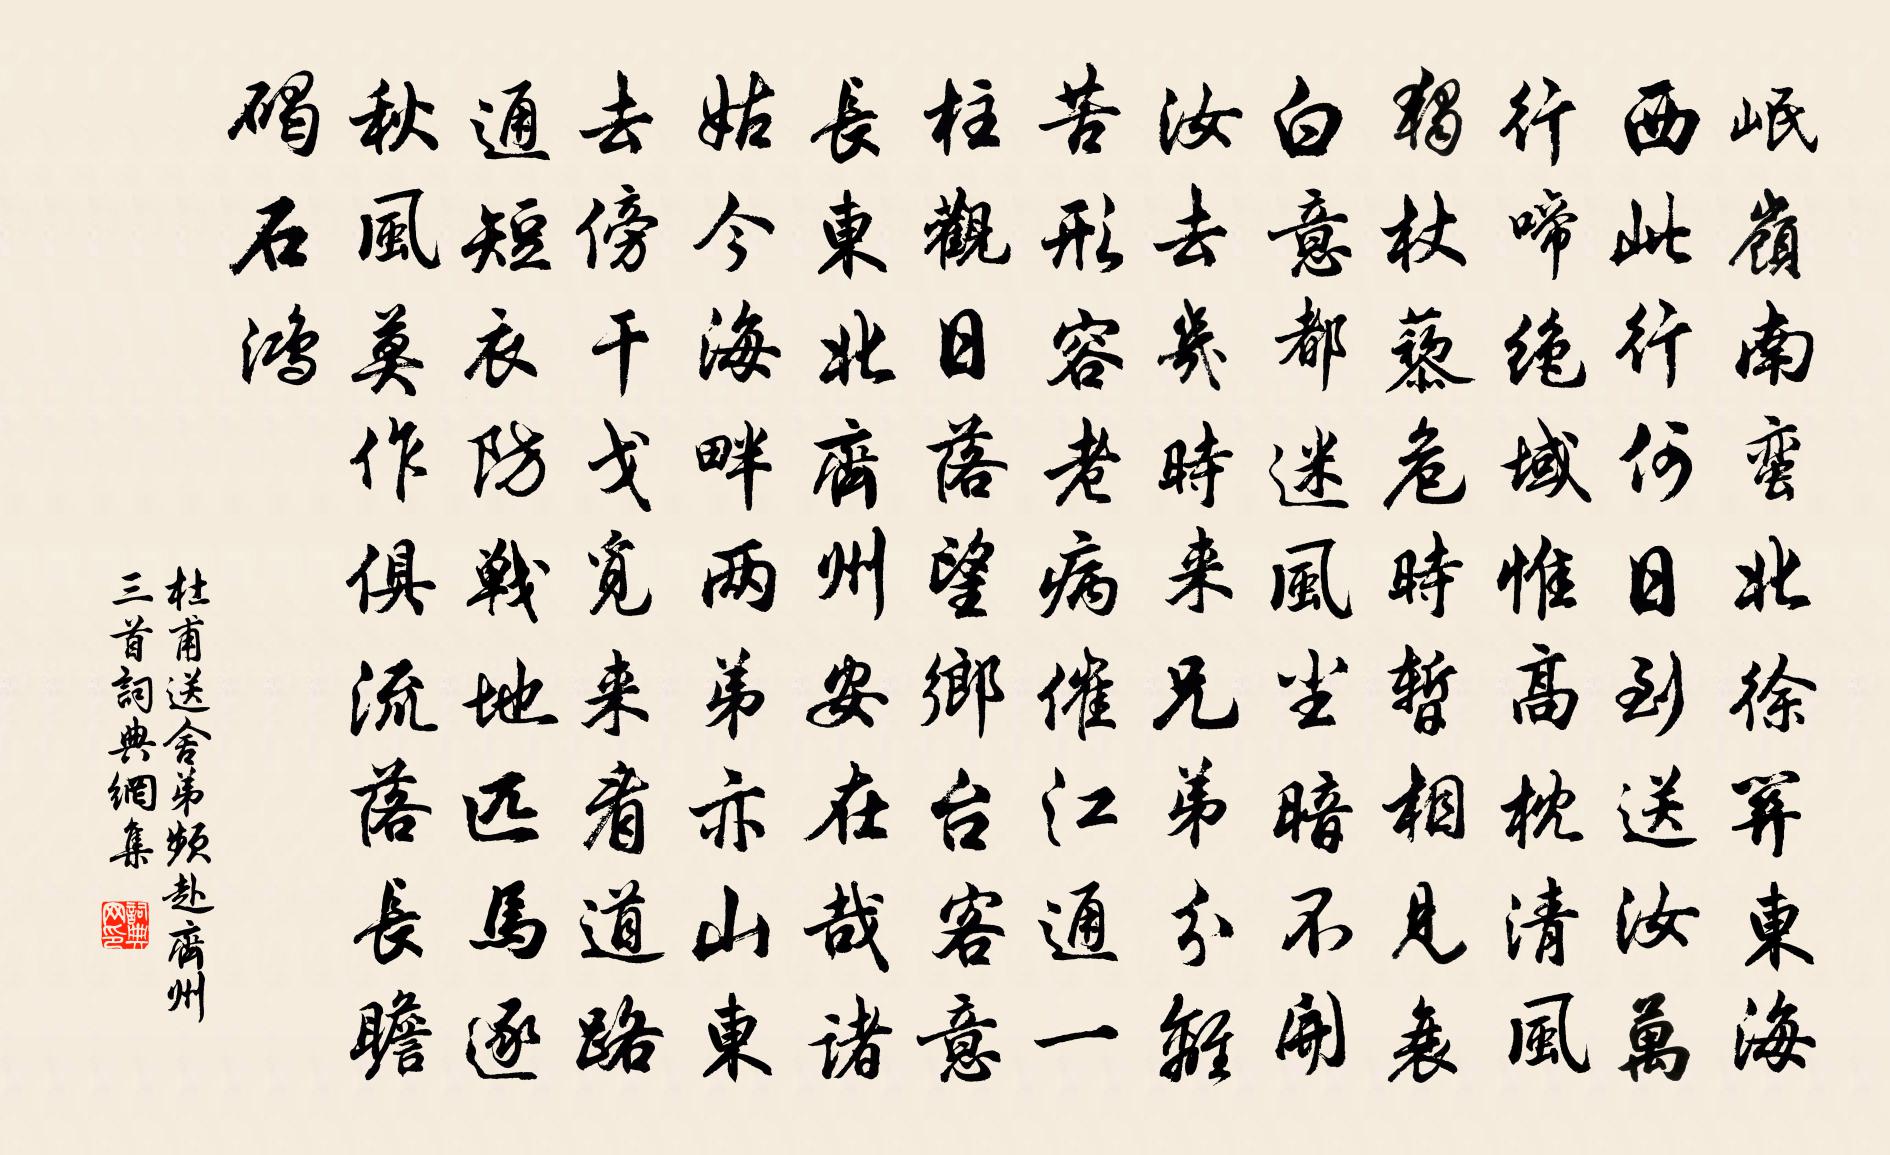 岷嶺南蠻北徐關東海
西此行何日到送汝萬
行啼絕域惟高枕清風
獨杖藜危時暫相見衰
白意都迷風塵暗不開
汝去幾時来兄弟分離
苦形容老病催江通一
柱觀日落望鄉台客意
長東北齊州安在哉諸
姑今海畔兩弟亦山東
去傍干戈覓来看道路
通短衣防戰地匹馬逐
秋風莫作俱流落長瞻
碣石鴻
杜甫送舍弟頻赴齊州
三首詞典網集
詞典网印